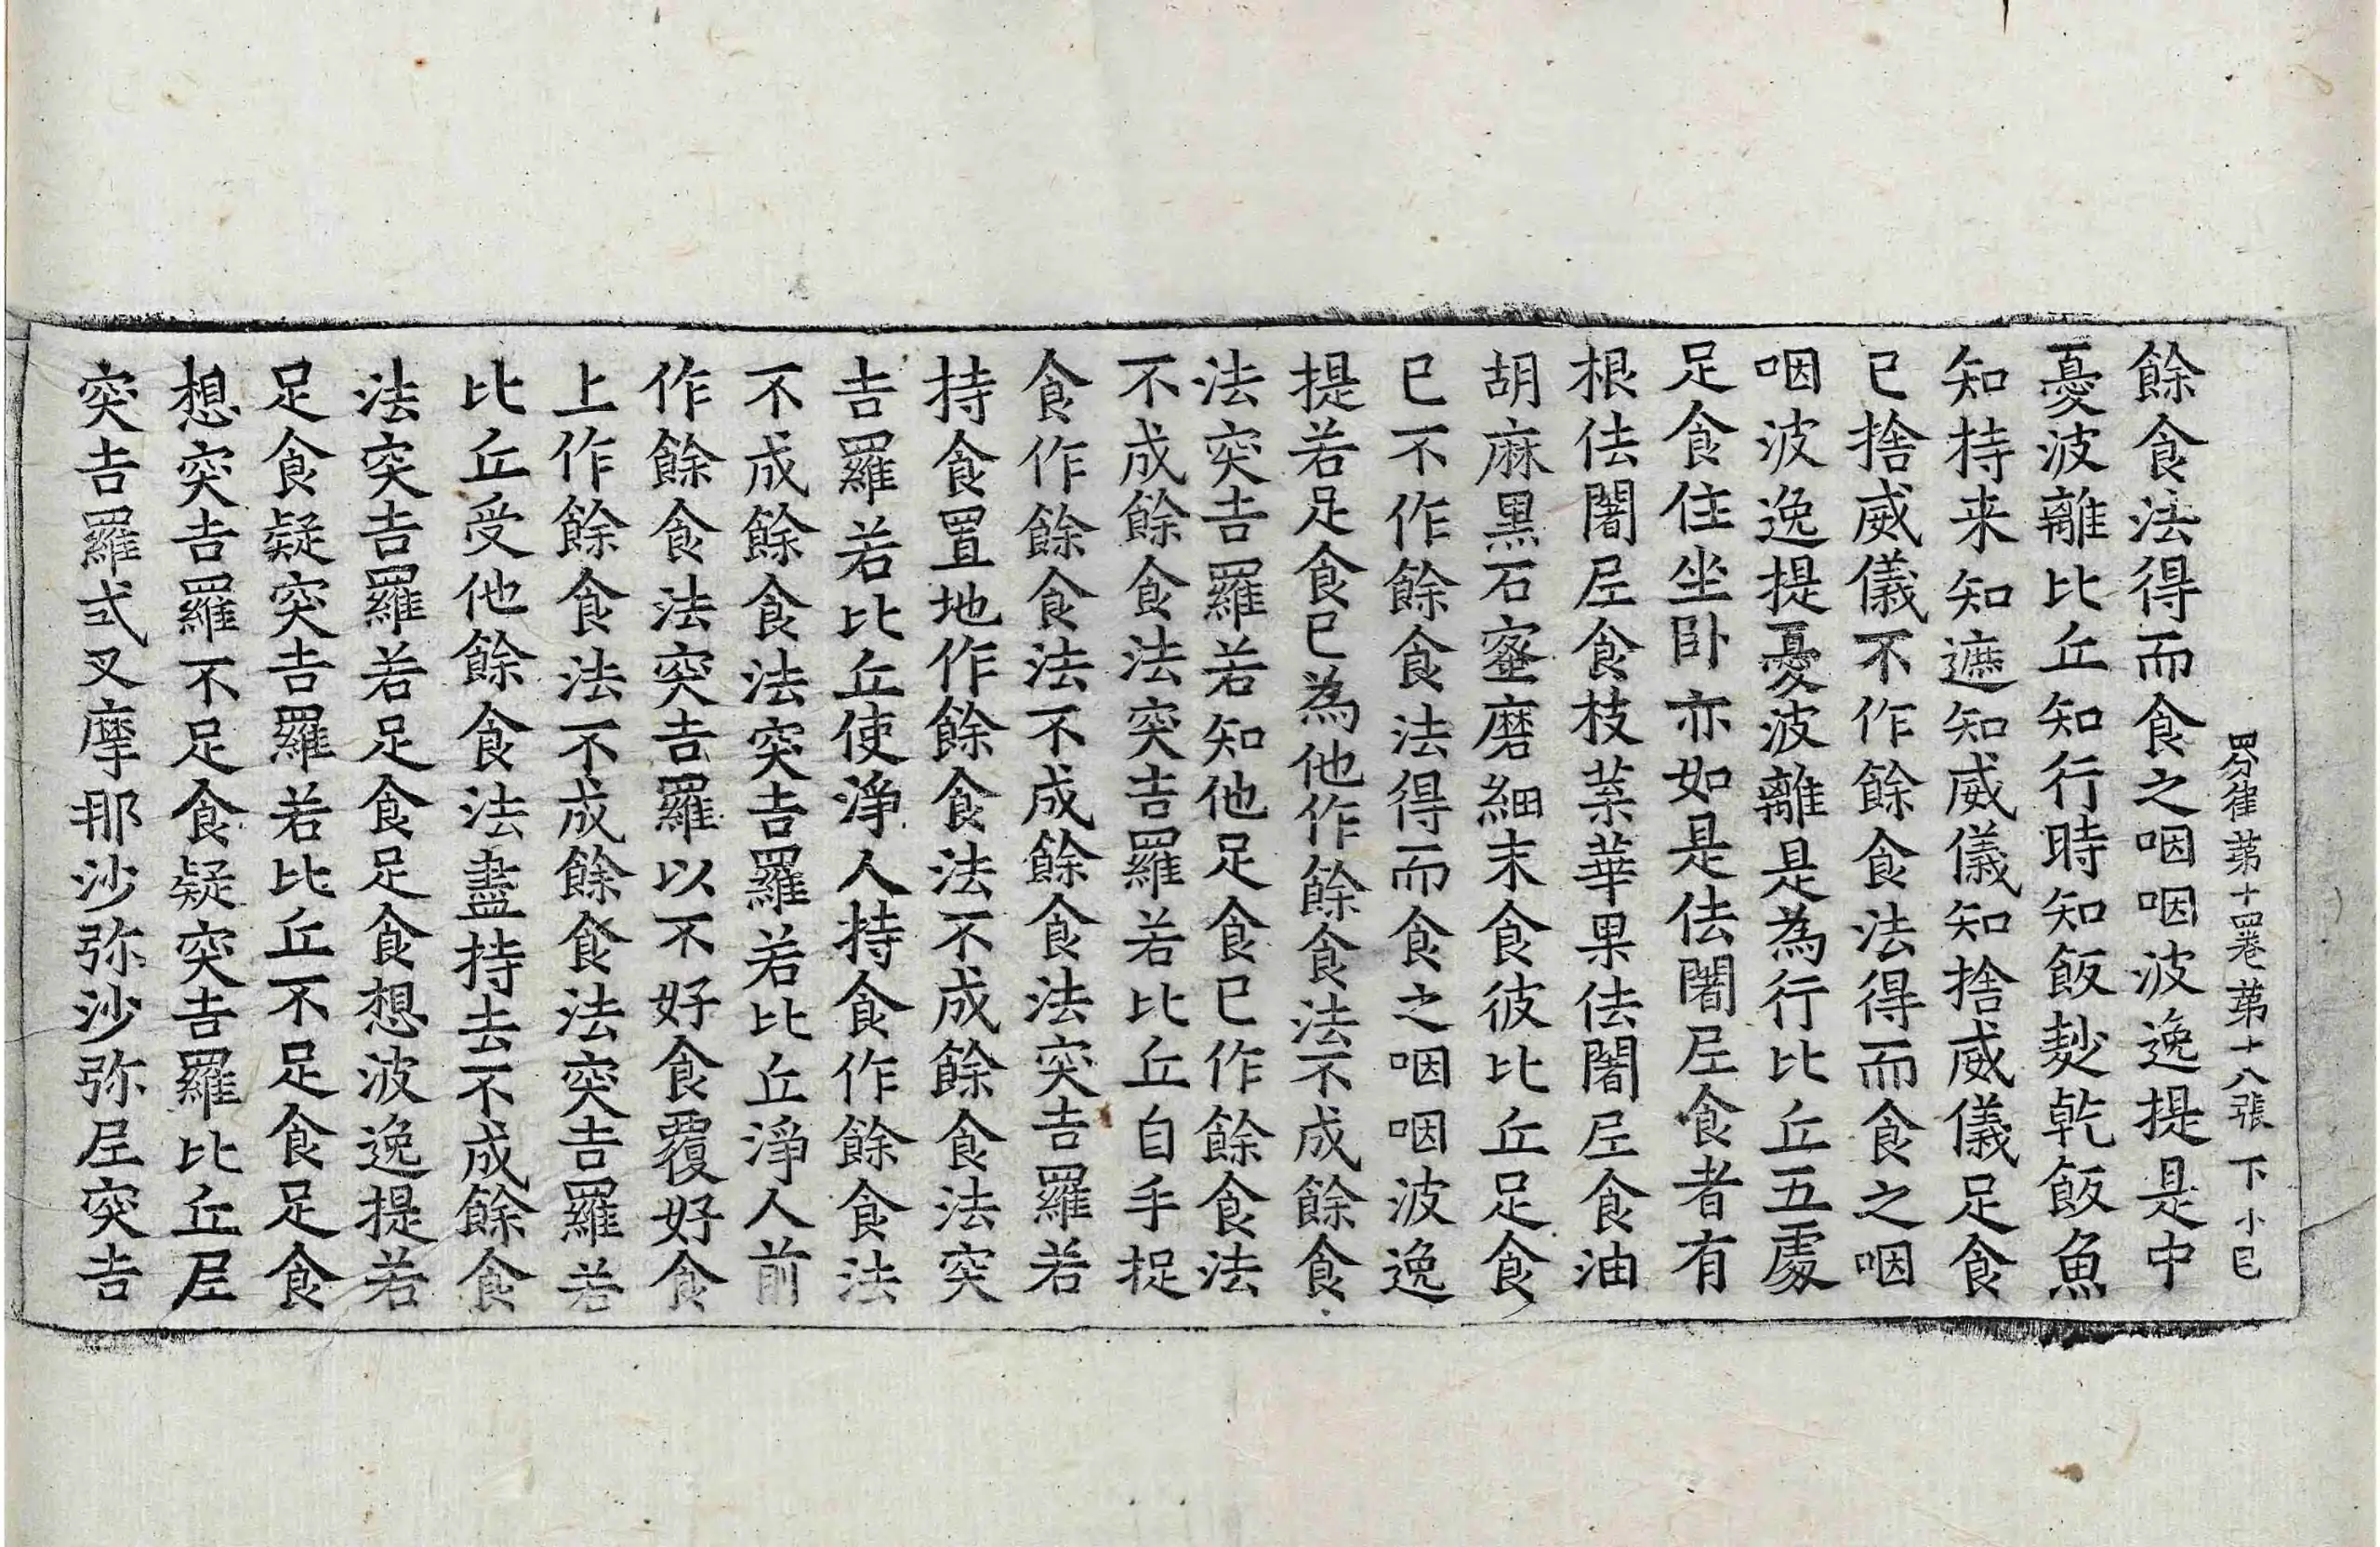 四分律第十四卷 第十八張 下 小巳
餘食法得而食之咽咽波逸提是中
憂波離比丘知行時知飯麨乾飯魚
知持来知遮知威儀知捨威儀足食
已捨威儀不作餘食法得而食之咽
咽波逸提憂波離是為行比丘五處
足食住坐臥亦如是佉闍𡰱食者有
根佉闍𡰱食枝葉華果佉闍𡰱食油
胡麻黑石蜜磨細末食彼比丘足食
已不作餘食法得而食之咽咽波逸
提若足食已為他作餘食法不成餘食
法突吉羅若知他足食已作餘食法
不成餘食法突吉羅若比丘自手捉
食作餘食法不成餘食法突吉羅若
持食置地作餘食法不成餘食法突
吉羅若比丘使淨人持食作餘食法
不成餘食法突吉羅若比丘淨人前
作餘食法突吉羅以不好食覆好食
上作餘食法不成餘食法突吉羅若
比丘受他餘食法盡持去不成餘食
法突吉羅若足食足食想波逸提若
足食疑突吉羅若比丘不足食足食
想突吉羅不足食疑突吉羅比丘𡰱
突吉羅式叉摩那沙弥沙弥𡰱突吉